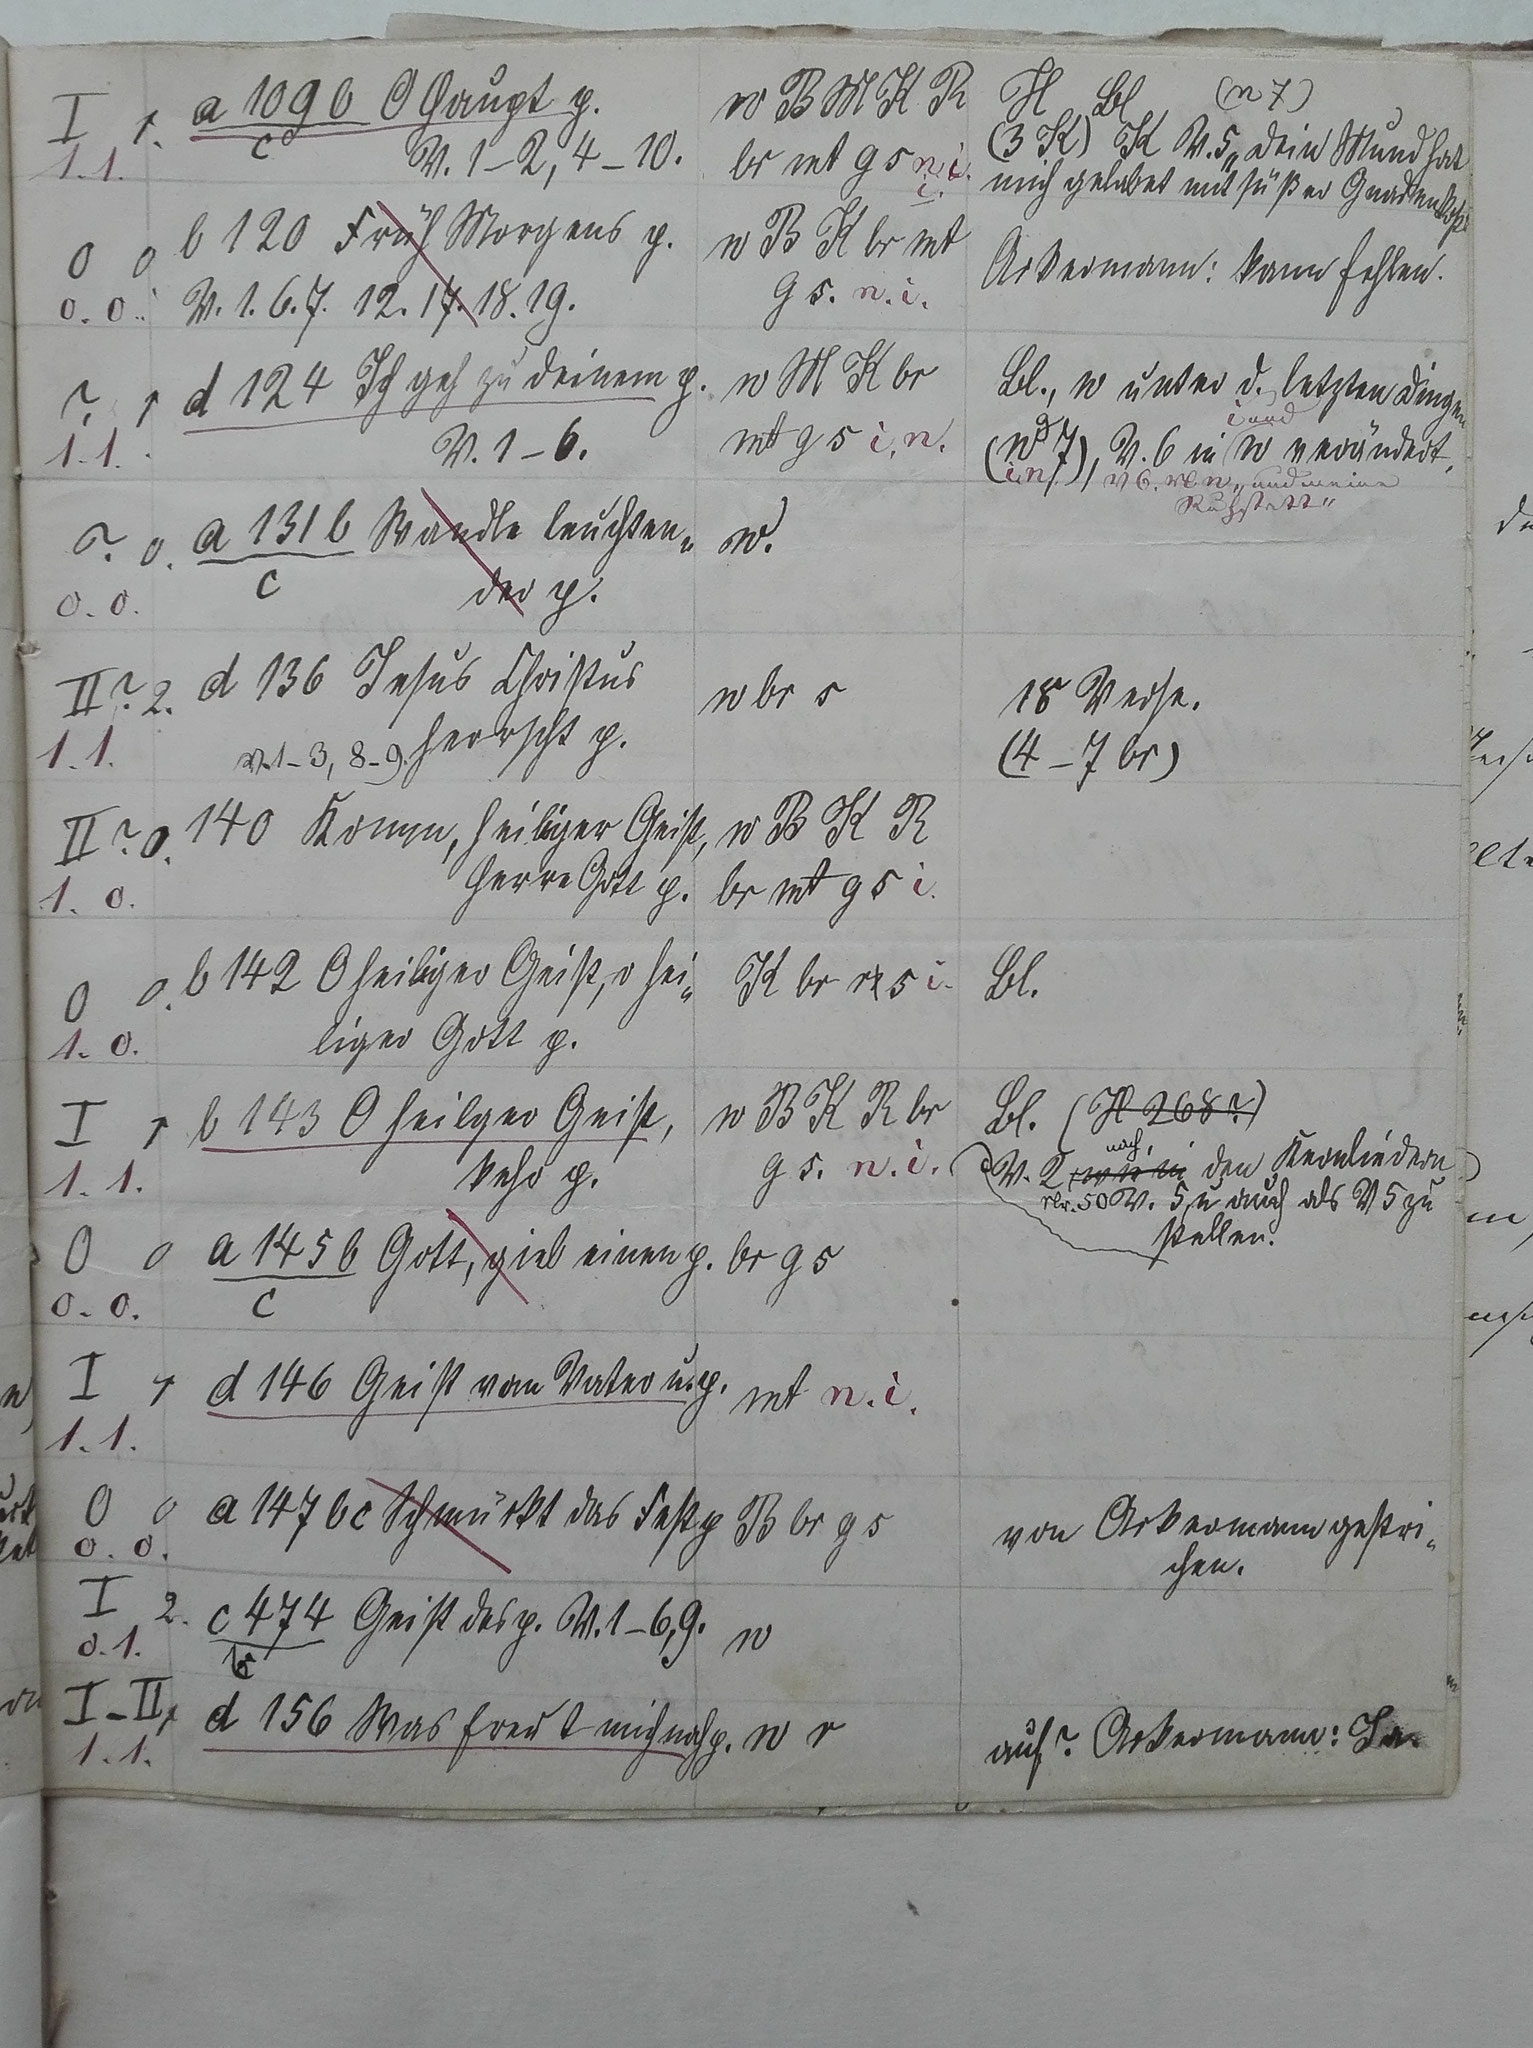 I 1. a 109 b O Haupt p. w B M K R H Bl (n 7)
1.1. c V. 1–2, 4–10. br mt g s n. i. (3 K) K V. 5 „Dein Mund hat
i. mich gelabet mit süßer Gnaden
0 0 b 120 Früh Morgens p. w B K br mt Ackermann: kann fehlen.
0. 0. V. 1. 6. 7. 12. 17. 18. 19. g s. n. i.
?. 1 d 124 Ich geh zu deinem p. w M K br Bl., w unter d. letzten Dingen
1.1. V. 1–6. mt g s i. n. (n 7), V. 6 in w verändert,
i und
(i n) V 6. „und meine
Ruhstatt"
?. 0. a 131 b Wandle leuchten„ w.
0. 0. c der p.
II ? 2. d 136 Jesus Christus w br s 18 Verse.
1.1. V. 1–3, 8–9. herrscht p. (4–7 br)
II ? 0. 140 Komm, heiliger Geist, w B K R
1. 0. Herre Gott p. br mt g s i.
0 0. b 142 O heiliger Geist, o hei„ K br s i. Bl.
1. 0. liger Gott p.
I 1 b 143 O heilger Geist, w B K R br Bl. (H 268?)
1. 1. kehr p. g s. n. i. V. 2 nach den Kernliedern
Nr. 50 V. 5, u auch als V 5 zu
stellen.
0 0 a 145 b Gott, gieb einen p. br g s
0. 0. c
I 1 d 146 Geist vom Vater u. p. mt n. i.
1. 1.
0 0 a 147 bc Schmückt das Fest p B br g s von Ackermann gestri„
0. 0. chen.
I 2. c 474 Geist des p. V. 1–6, 9. w
0. 1.
I–II, 1 d 156 Was freut mich noch p. w r auf? Ackermann: Ja.
1. 1.